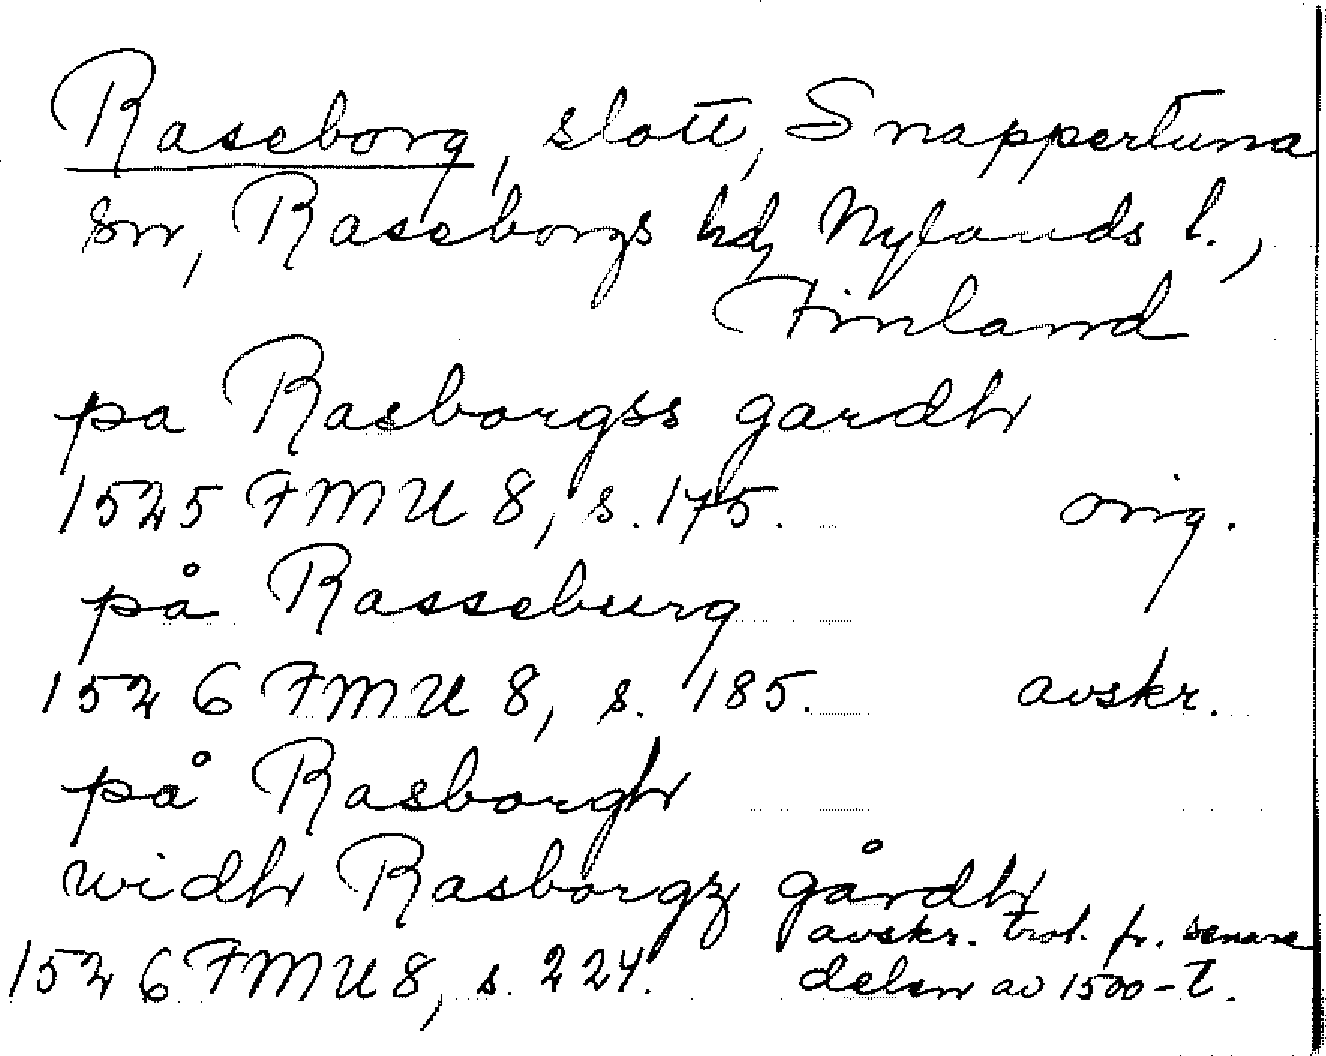 Raseborg, slott, Snappertuna
sn, Raseborgs hd, Nylands l.,
Finland
pa Rasborgss gardh
1525 FMU 8, s. 175. orig.
på Rasseburg
1526 FMU 8, s. 185. avskr.
på Rasborgh
widh Rasborgz gårdh
avskr. trol. fr. senare
1526 FMU 8, s. 224. delen av 1500-t.